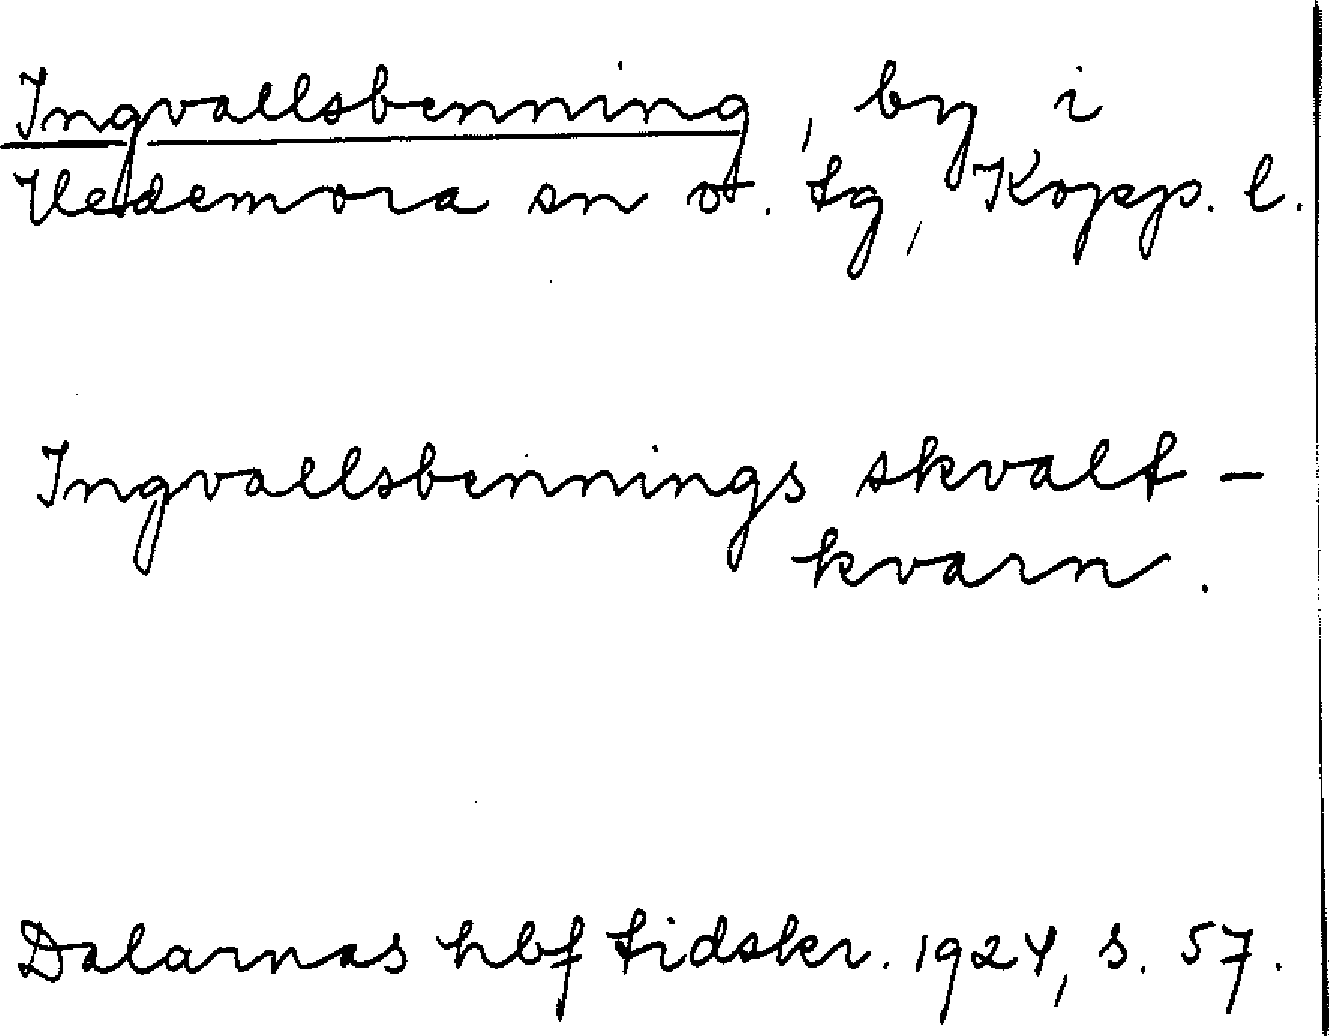 Ingvallsbenning, by i
Hedemora sn o. tg, Kopp. l.
Ingvallsbennings skvalt-
kvarn.
Dalarnas hbf tidskr. 1924, s. 57.